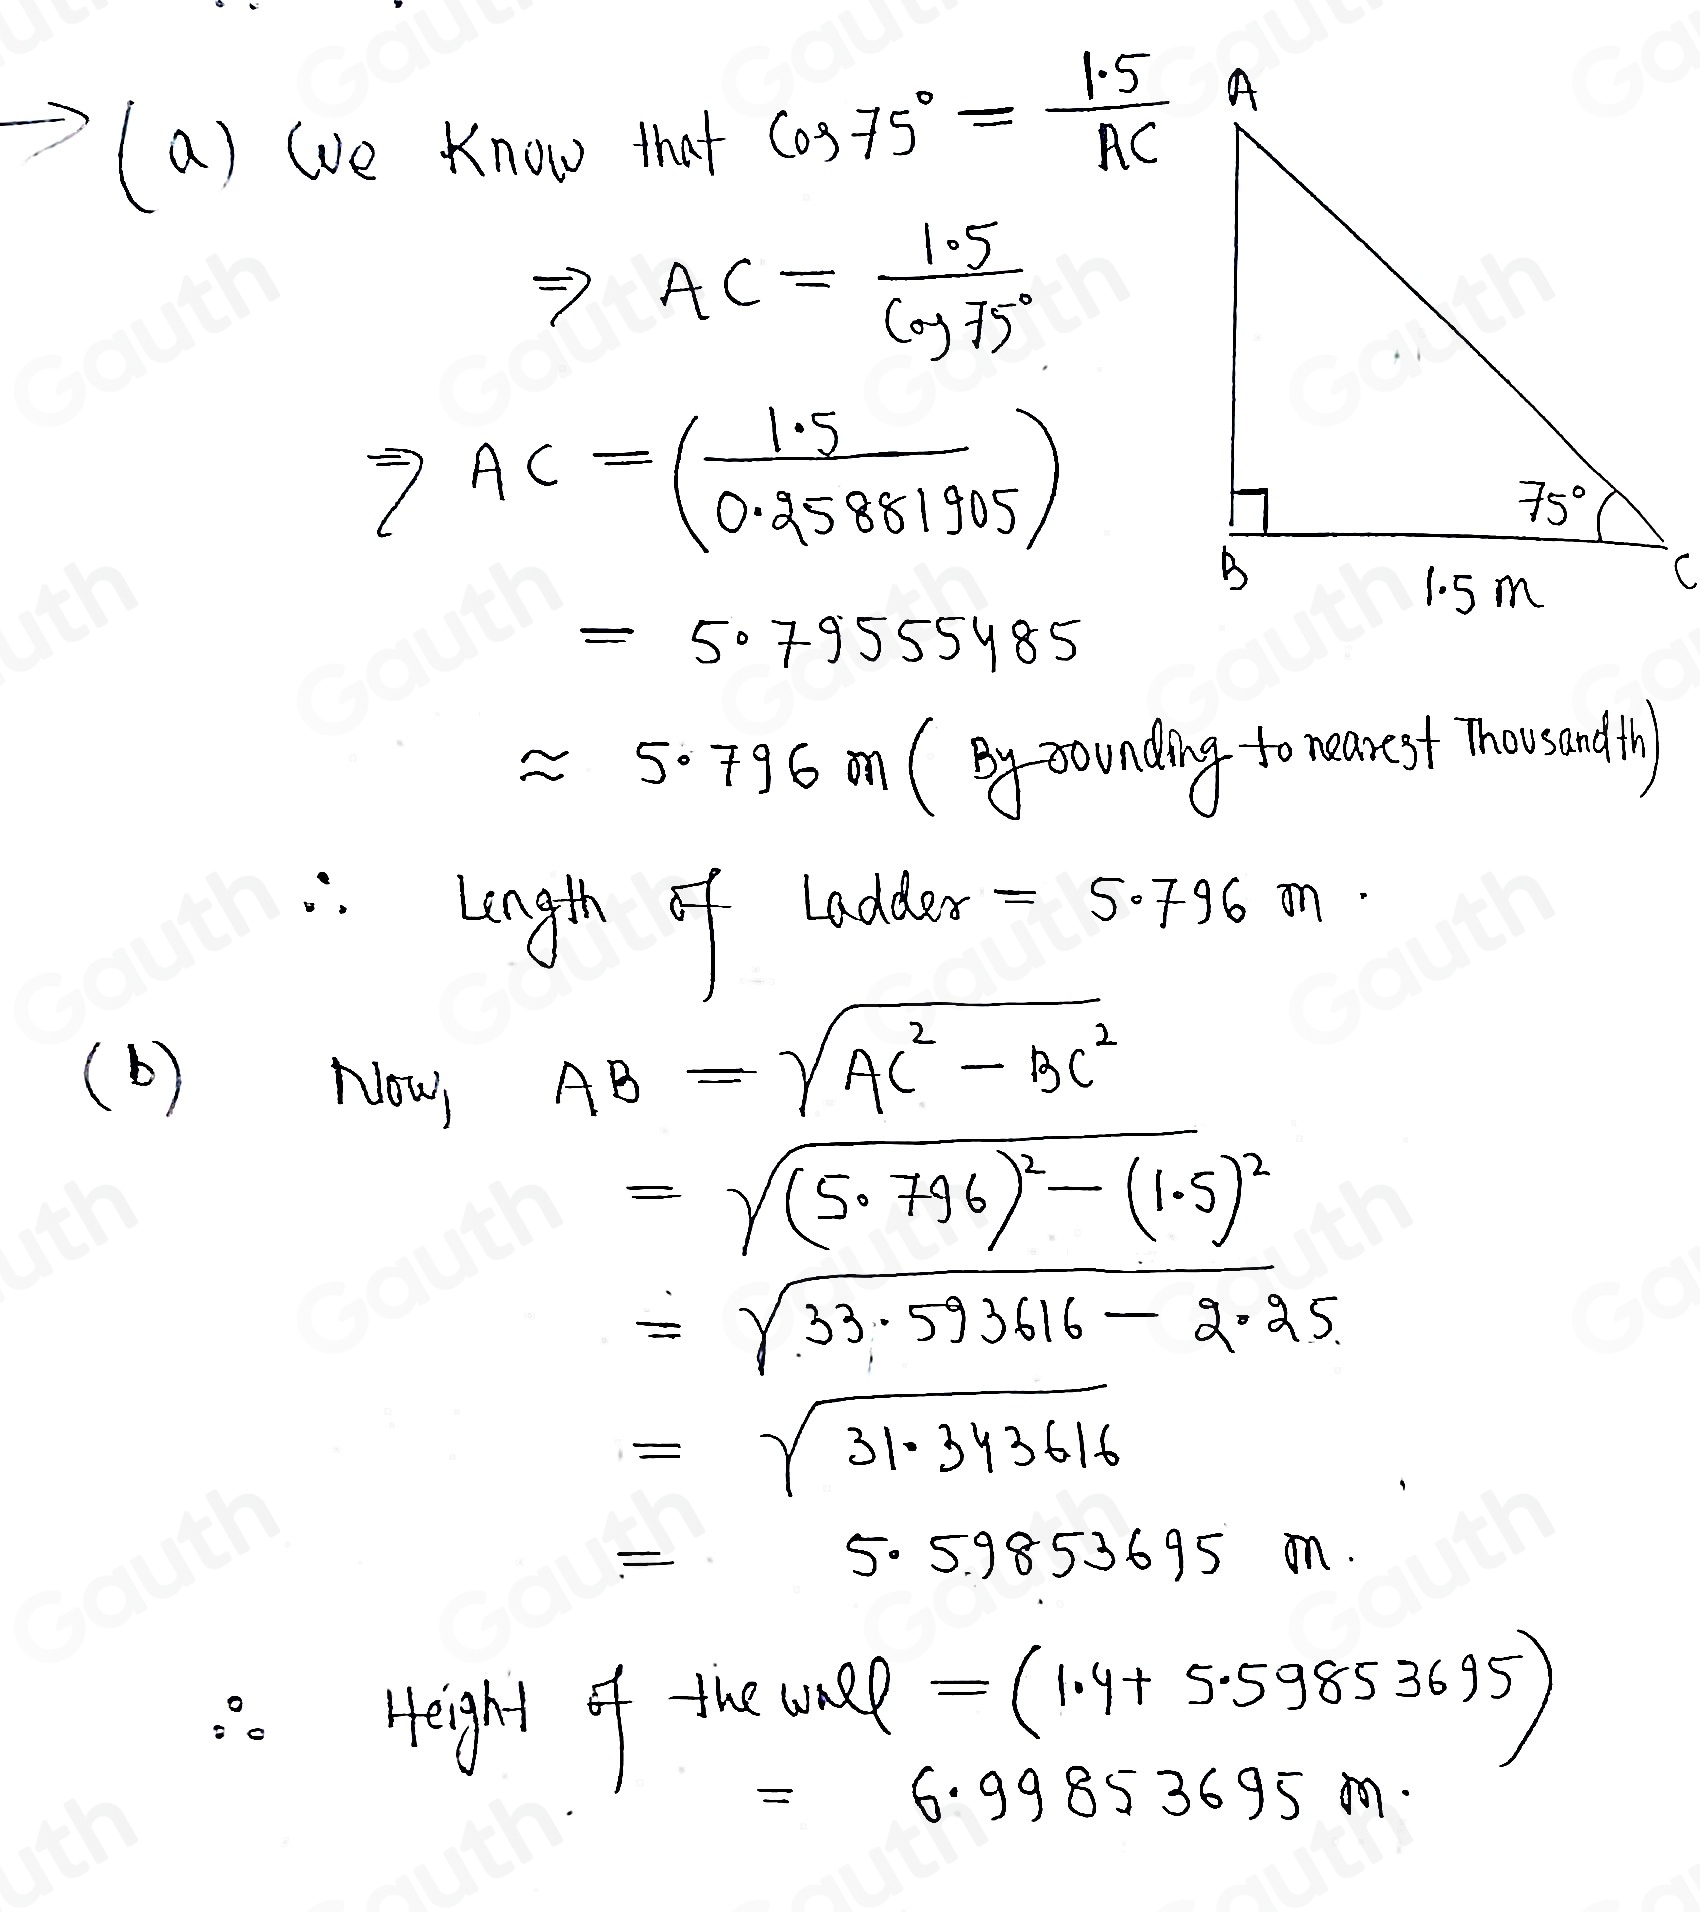 → (a) We Know that Cos 75° = 1.5 / AC
⇒ AC = 1.5 / Cos 75°
⇒ AC = (1.5 / 0.25881905)
= 5.79555485
≈ 5.796 m (By rounding to nearest Thousandth)
∴ Length of Ladder = 5.796 m.
A
B
C
75°
1.5 m
(b) Now, AB = √(AC² - BC²)
= √((5.796)² - (1.5)²)
= √(33.593616 - 2.25)
= √31.343616
= 5.59853695 m.
∴ Height of the wall = (1.4 + 5.59853695)
= 6.99853695 m.
Gauth